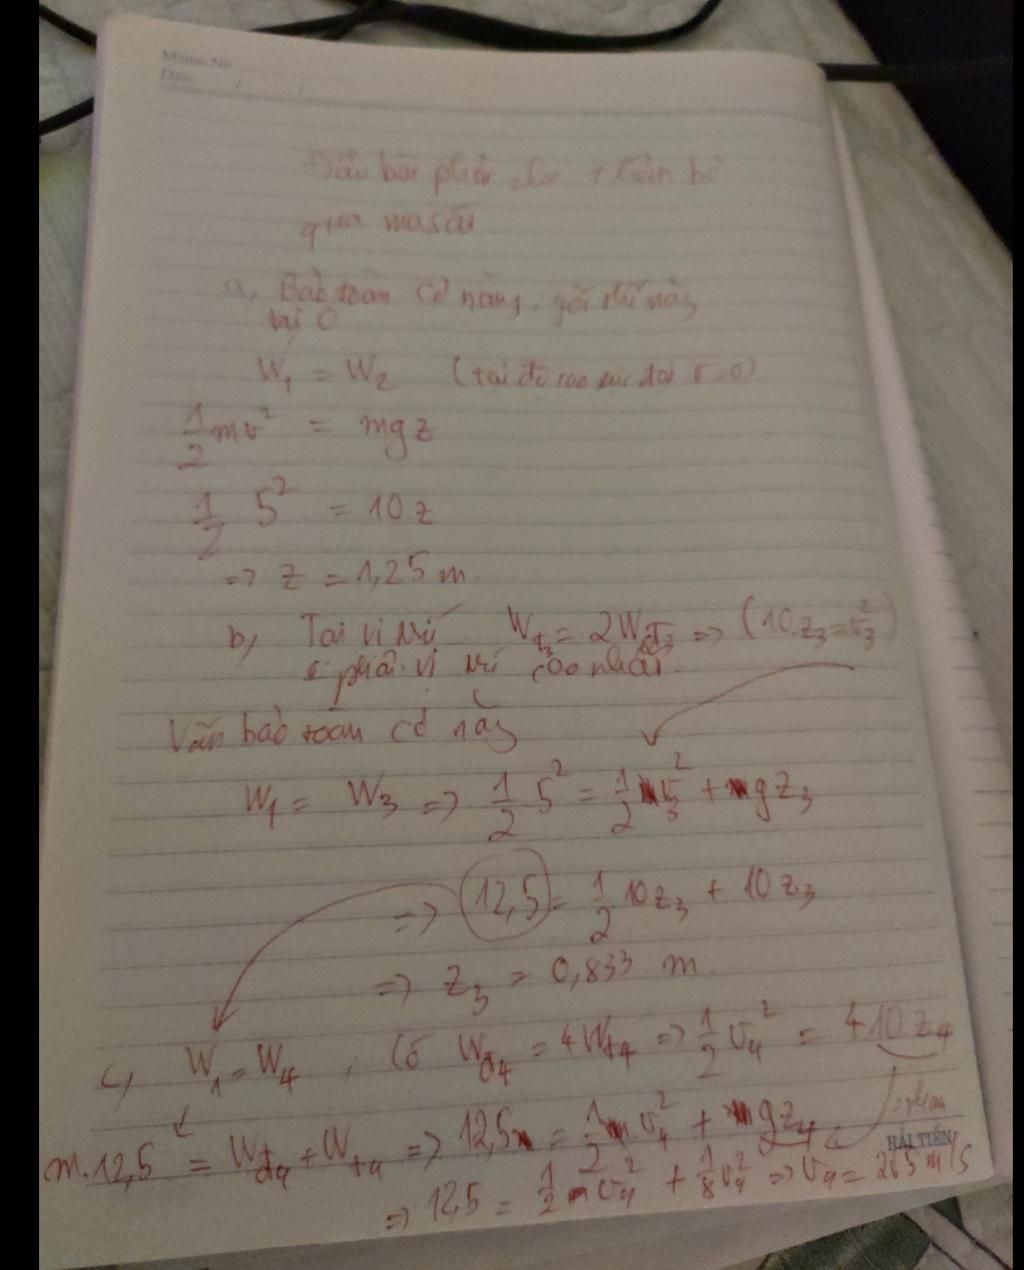 Memo No.
Date / /
Đầu bài phải cho thêm bỏ
qua ma sát
a, Bảo toàn cơ năng. gọi thế năng
tại 0
W₁ = W₂ (tại độ cao cực đại v=0)
1/2 mv² = mgz
1/2 5² = 10.z
=> z = 1,25 m.
b, Tại vị trí Wt₃ = 2Wđ₃ => (10.z₃ = v₃²)
phải vị trí cao nhất.
Vẫn bảo toàn cơ năng
W₁ = W₃ => 1/2 5² = 1/2 v₃² + gz₃
=> 12,5 = 1/2 10z₃ + 10z₃
=> z₃ = 0,833 m.
c, W₁ = W₄, có Wđ₄ = 4Wt₄ => 1/2 v₄² = 4.10z₄
m.12,5 = Wđ₄ + Wt₄ => 12,5 = 1/2 v₄² + gz₄
HẢI TIẾN
=> 12,5 = 1/2 v₄² + 1/8 v₄² => v₄ = 2√5 m/s